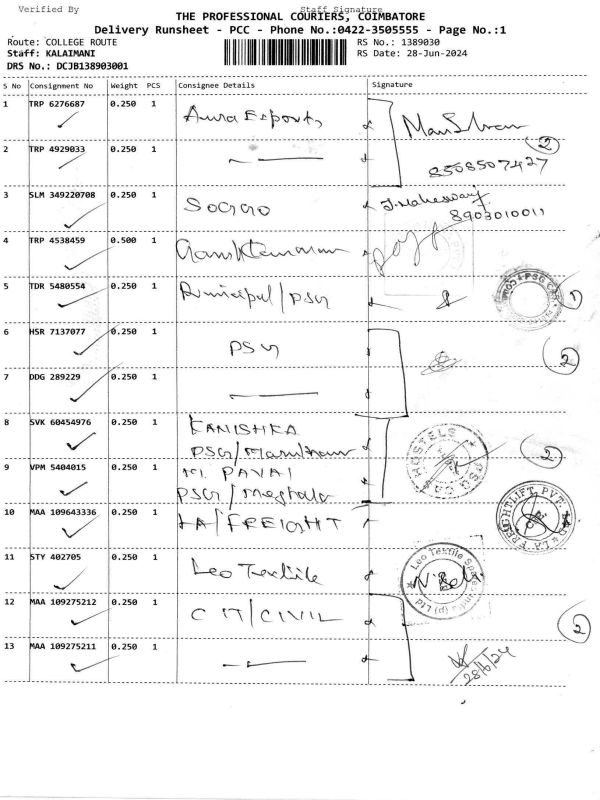 Verified By Staff Signature
THE PROFESSIONAL COURIERS, COIMBATORE
Delivery Runsheet - PCC - Phone No.:0422-3505555 - Page No.:1
Route: COLLEGE ROUTE RS No.: 1389030
Staff: KALAIMANI RS Date: 28-Jun-2024
DRS No.: DCJB138903001
S No Consignment No Weight PCS Consignee Details Signature
1 TRP 6276687 0.250 1 Aura Exports
2 TRP 4929033 0.250 1 2
8508507427
3 SLM 349220708 0.250 1
8903010011
4 TRP 4538459 0.500 1
5 TDR 5480554 0.250 1 Principal/PSG 1
6 HSR 7137077 0.250 1 PSG 2
7 DDG 289229 0.250 1
8 SVK 60454976 0.250 1 KANISHKA
PSG/ HOSTELS 2
9 VPM 5404015 0.250 1 M. PAVAI
PSG/Meghala
10 MAA 109643336 0.250 1 LA/FREIGHT FREIGHTLIFT PVT.
11 STY 402705 0.250 1 Leo Textile Leo Textile Spares India (p) Ltd
12 MAA 109275212 0.250 1 CIT/CIVIL 2
13 MAA 109275211 0.250 1
28/6/24